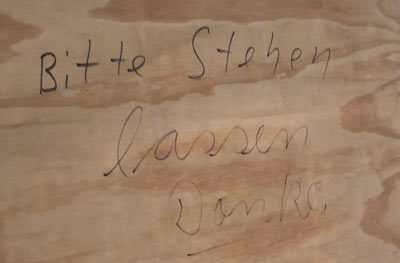 Bitte Stehen
lassen
Danke.